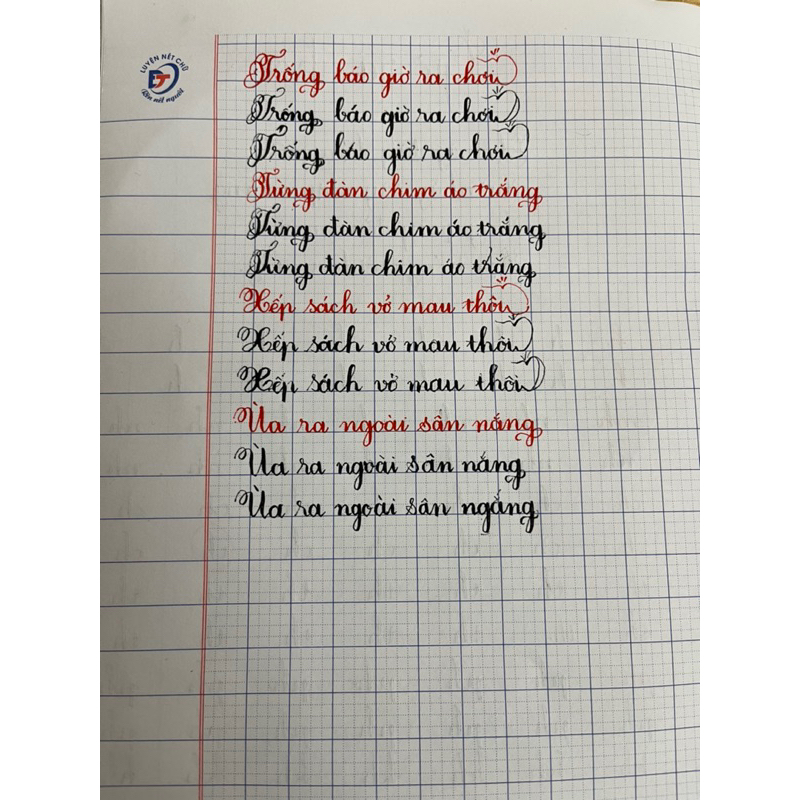 LUYỆN NÉT CHỮ
ĐT
Rèn nết người
Trống báo giờ ra chơi
Trống báo giờ ra chơi
Trống báo giờ ra chơi
Từng đàn chim áo trắng
Từng đàn chim áo trắng
Từng đàn chim áo trắng
Xếp sách vở mau thôi
Xếp sách vở mau thôi
Xếp sách vở mau thôi
Ùa ra ngoài sân nắng
Ùa ra ngoài sân nắng
Ùa ra ngoài sân ngắng